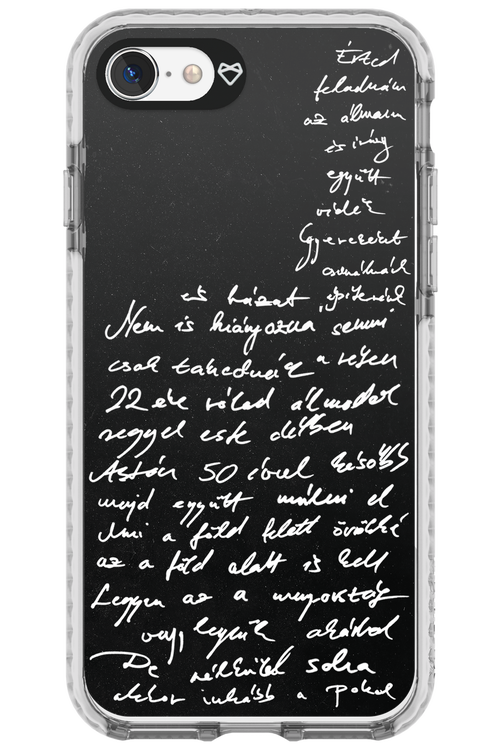 Érted
feladnám
az álmaim
és így
együtt
veled
Gyerekeket
csinálnánk
és házat építenénk
Nem is hiányozna semmi
csak takednék a vében
22 éve rólad álmodok
reggel este délben
Aztán 50 évvel később
majd együtt múlni el
Ami a föld felett örökké
az a föld alatt is kell
Legyen az a mennyország
vagy legyünk akárhol
De nélküled soha
akkor inkább a Pokol